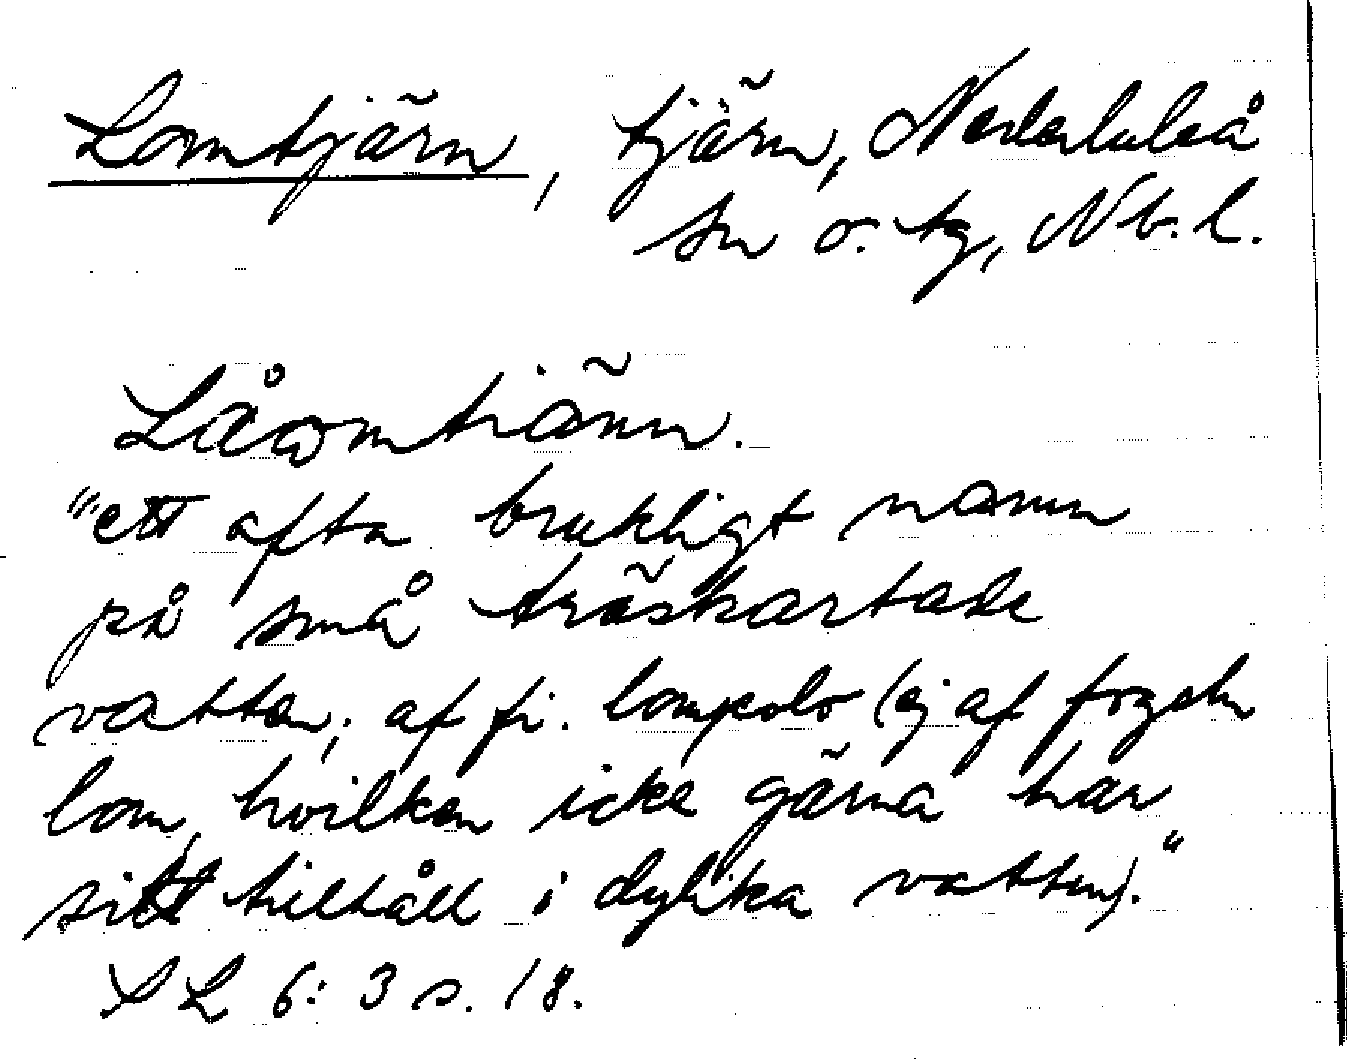 Lomtjärn, tjärn, Nederluleå
sn o. tg, Nb. l.
Låωmtiänn.
"ett ofta brukligt namn
på små träskartade
vatten; af fi. lompolo (ej af fogeln
lom, hvilken icke gärna har
sitt tillhåll i dylika vatten)."
SL 6:3 s. 18.